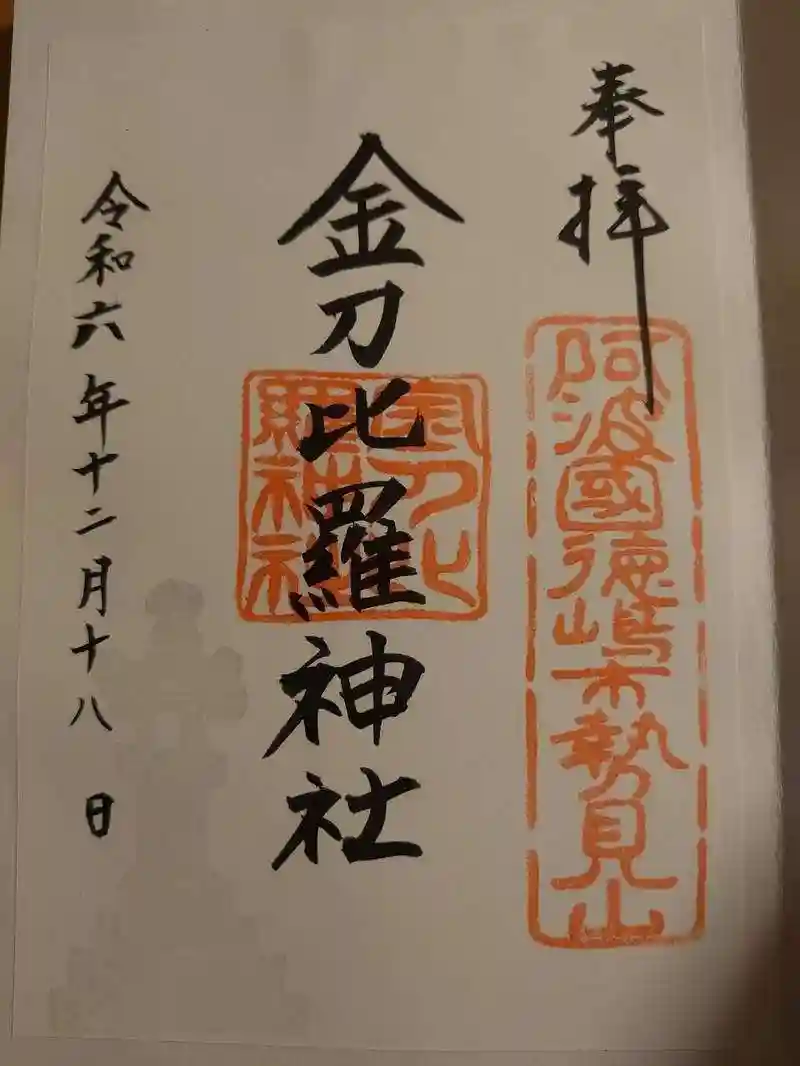 奉拝
阿波國徳嶋市勢見山
金刀比羅神社
金刀比羅神社
令和六年十二月十八日